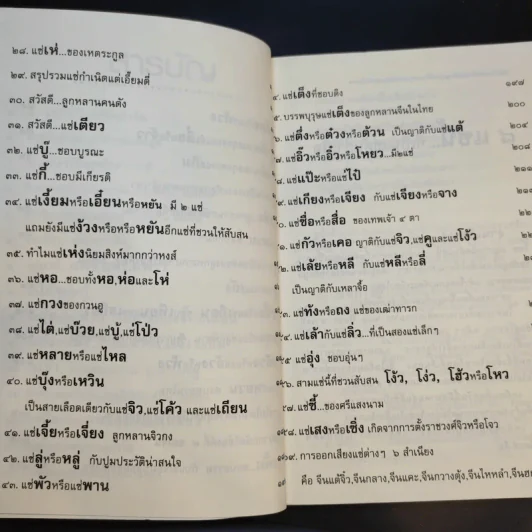 ๒๘. แซ่เห่...ของเหตระกูล
๒๙. สรุปรวมแซ่กำเนิดแต่เอี้ยมตี่
๓๐. สวัสดี...ลูกหลานคนดัง
๓๑. สวัสดี...แซ่เตียว
๓๒. แซ่บู๊...ชอบบูรณะ
๓๓. แซ่กี้...ชอบมีเกียรติ
๓๔. แซ่เงี้ยมหรือเอี้ยนหรือหยัน มี ๒ แซ่
แถมยังมีแซ่ง้วงหรือหรือหยันอีกแซ่ที่ชวนให้สับสน
๓๕. ทำไมแซ่เห่งนิยมสิงห์มากกว่าหงส์
๓๖. แซ่หอ...ชอบทั้งหอ,ห่อและโห่
๓๗. แซ่กวงของกวนอู
๓๘. แซ่ไต่,แซ่บ๊วย,แซ่บู้,แซ่โป๋ว
๓๙. แซ่หลายหรือแซ่ไหล
๔๐. แซ่บุ๊งหรือเหวิน
เป็นสายเลือดเดียวกับแซ่จิว,แซ่โค้ว และแซ่เถียน
๔๑. แซ่เจี้ยหรือเจี่ยง ลูกหลานจิวกง
๔๒. แซ่ลู่หรือหลู่ กับปูมประวัติน่าสนใจ
๔๓. แซ่พัวหรือแซ่พาน
๔. แซ่เต็งที่ชอบติง ๑๙๘
๕. บรรพบุรุษแซ่เต็งของลูกหลานจีนในไทย ๒๐๐
๖. แซ่ตึ่งหรือต๋วงหรือต้วน เป็นญาติกับแซ่แต้ ๒๐๔
๗. แซ่อิ๊วหรืออิ๋วหรือโหยว...มี๒แซ่ ๒๐๘
๘. แซ่แป๊ะหรือแซ่ไป๋
๙. แซ่เกียงหรือเจียง กับแซ่เจียงหรือจาง
๐. แซ่ซื่อหรือสื่อ ของเทพเจ้า ๔ ตา
๑. แซ่กัวหรือเคอ ญาติกับแซ่จิว,แซ่คูและแซ่โง้ว
๒. แซ่เล้ยหรือหลี กับแซ่หลีหรือลี่
เป็นญาติกับเหลาจื้อ
๓. แซ่ทังหรือถัง แซ่ของเฒ่าทารก
๔. แซ่เล้ากับแซ่ลิ่ว...ที่เป็นสองแซ่เล็กๆ
๕ แซ่อุ่ง ชอบอุ่นๆ
๖. สามแซ่นี้ที่ชวนสับสน โง้ว, โง่ว, โฮ้วหรือโหว
๗. แซ่ซี้...ของศรีแสงนาม
๘. แซ่เสงหรือเซิ่ง เกิดจากการตั้งราชวงศ์จิวหรือโจว
๑๙. การออกเสียงแซ่ต่างๆ ๖ สำเนียง
คือ จีนแต้จิ๋ว,จีนกลาง,จีนแคะ,จีนกวางตุ้ง,จีนไหหลำ,